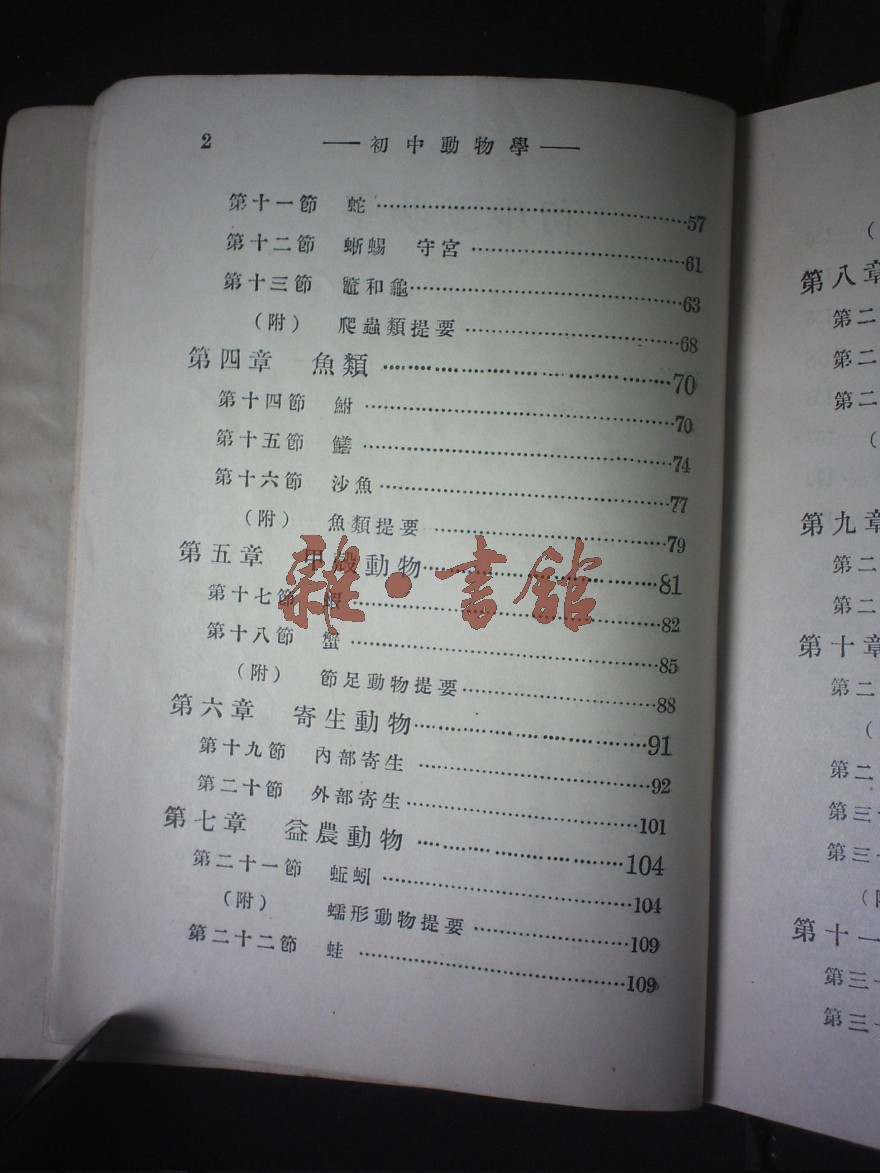 2 ——初中動物學——
第十一節 蛇……57
第十二節 蜥蜴 守宮……61
第十三節 鼈和龜……63
(附) 爬蟲類提要……68
第四章 魚類……70
第十四節 鮒……70
第十五節 鱔……74
第十六節 沙魚……77
(附) 魚類提要……79
第五章 甲殼動物……81
第十七節 蝦……82
第十八節 蟹……85
(附) 節足動物提要……88
第六章 寄生動物……91
第十九節 內部寄生……92
第二十節 外部寄生……101
第七章 益農動物……104
第二十一節 蚯蚓……104
(附) 蠕形動物提要……109
第二十二節 蛙……109
雜·書館
(
第八章
第二
第二
第二
(
第九章
第二
第二
第十章
第二
(
第二
第三
第三
(附
第十一
第三十
第三十